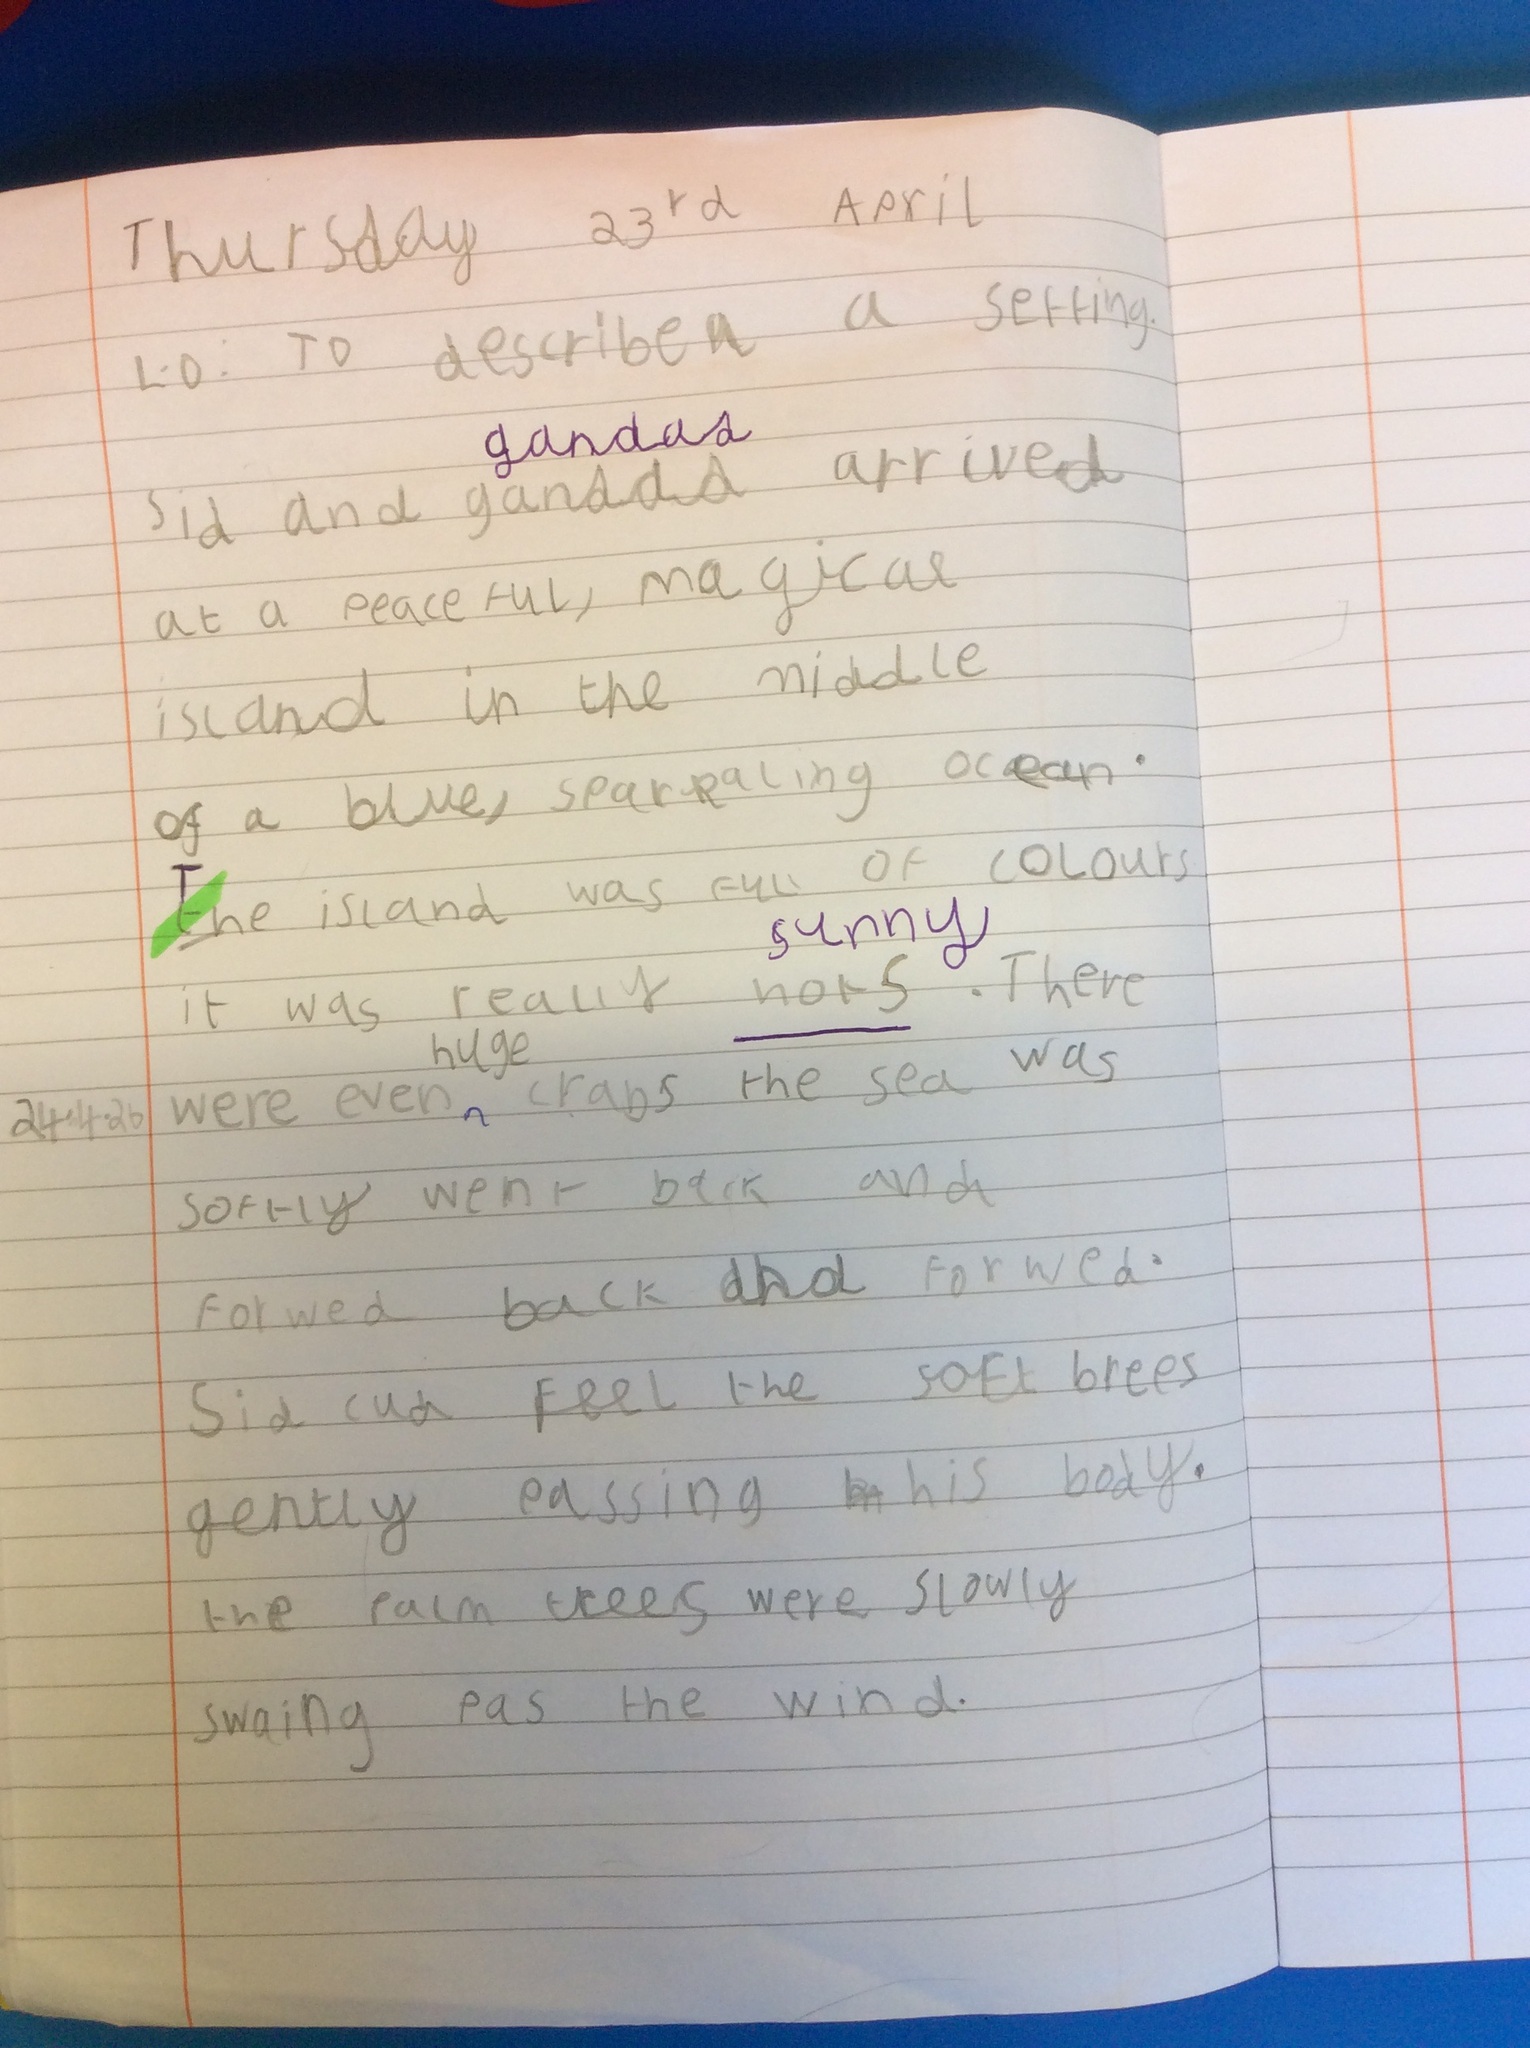 Thursday 23rd April
L.O: To describe a setting.
gandad
Sid and gandad arrived
at a peaceful, magical
island in the middle
of a blue, sparkaling ocean.
The island was full of colours
sunny
it was really hots . There
huge
24.4.26 were even ^ crabs the sea was
softly went back and
forwed back and forwed.
Sid cud feel the soft brees
gently passing his body.
the palm trees were slowly
swaing pas the wind.